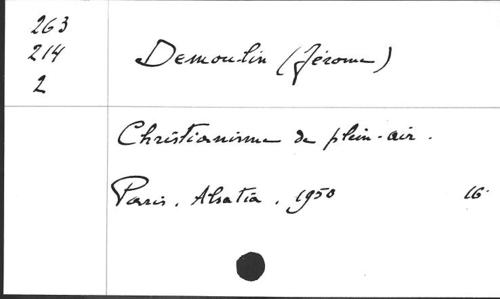 263
214
2
Demoulin (Jérome)
Christianisme de plein-air.
Paris, Alsatia, 1950 16°